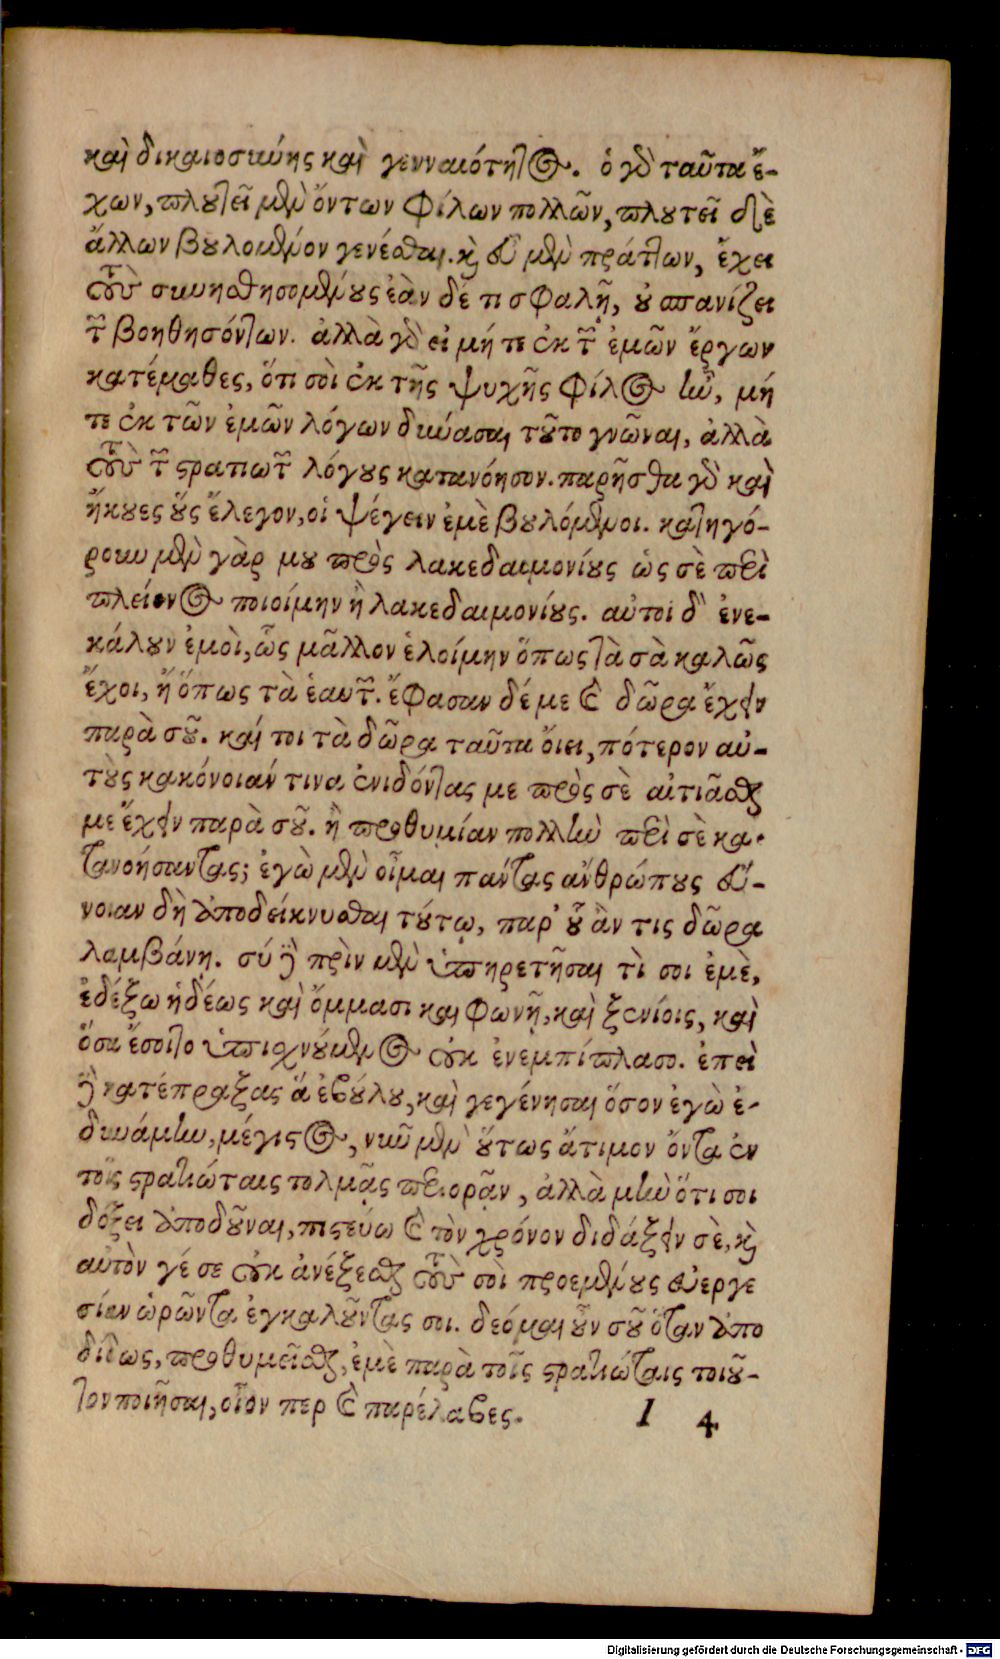 καὶ δικαιοσύνης καὶ γενναιότητος. ὁ γὰρ ταῦτα ἔ-
χων, πλουτεῖ μὲν ὄντων φίλων πολλῶν, πλουτεῖ δὲ
ἄλλων βουλομένων γενέσθαι. καὶ εὖ μὲν πράττων, ἔχει
τοὺς συνησθησομένους ἐὰν δέ τι σφαλῇ, οὐ σπανίζει
τῶν βοηθησόντων. ἀλλὰ γὰρ εἰ μήτε ἐκ τῶν ἐμῶν ἔργων
κατέμαθες, ὅτι σοὶ ἐκ τῆς ψυχῆς φίλος ἦν, μή
τε ἐκ τῶν ἐμῶν λόγων δύνασαι τοῦτο γνῶναι, ἀλλὰ
τοὺς τῶν στρατιωτῶν λόγους κατανόησον. παρῆσθα γὰρ καὶ
ἤκουες οὓς ἔλεγον, οἱ ψέγειν ἐμὲ βουλόμενοι. κατηγό-
ρουν μὲν γὰρ μου πρὸς λακεδαιμονίους ὡς σὲ περὶ
πλείονος ποιοίμην ἢ λακεδαιμονίους. αὐτοὶ δ' ἐνε-
κάλουν ἐμοὶ, ὡς μᾶλλον ἑλοίμην ὅπως τὰ σὰ καλῶς
ἔχοι, ἢ ὅπως τὰ ἑαυτῶν. ἔφασαν δέ με καὶ δῶρα ἔχειν
παρὰ σοῦ. καί τοι τὰ δῶρα ταῦτα οἴει, πότερον αὐ-
τοὺς κακόνοιάν τινα ἐνιδόντας με πρὸς σὲ αἰτιᾶσθαι
με ἔχειν παρὰ σοῦ. ἢ προθυμίαν πολλὴν περὶ σὲ κα-
τανοήσαντας; ἐγὼ μὲν οἶμαι πάντας ἀνθρώπους εὔ-
νοιαν δὴ ἀποδείκνυσθαι τούτῳ, παρ' οὗ ἂν τις δῶρα
λαμβάνῃ. σύ δὲ πρὶν μὲν ὑπηρετῆσαι τὶ σοι ἐμὲ,
ἐδέξω ἡδέως καὶ ὄμμασι και φωνῇ, καὶ ξενίοις, καὶ
ὅσα ἔσοιτο ὑπισχνούμενος οὐκ ἐνεμπίπλασο. ἐπεὶ
δὲ κατέπραξας ἃ ἐβούλου, καὶ γεγένησαι ὅσον ἐγὼ ἐ-
δυνάμην, μέγιστος, νῦν μὲν οὕτως ἄτιμον ὄντα ἐν
τοῖς στρατιώταις τολμᾷς περιορᾶν, ἀλλὰ μὴν ὅτι σοι
δόξει ἀποδοῦναι, πιστεύω καὶ τὸν χρόνον διδάξειν σὲ, καὶ
αὐτὸν γέ σε οὐκ ἀνέξεσθαι τοὺς σοὶ προεμένους εὐεργε
σίαν ὁρῶντα ἐγκαλοῦντας σοι. δεόμαι οὖν σοῦ ὅταν ἀπο
διδως, προθυμεῖσθαι, ἐμὲ παρὰ τοῖς στρατιώταις τοιοῦ-
τον ποιῆσαι, οἷον περ καὶ παρέλαβες.
I 4
Digitalisierung gefördert durch die Deutsche Forschungsgemeinschaft - DFG